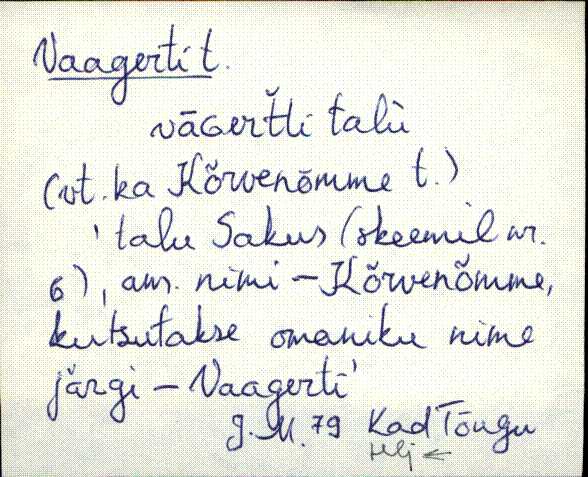 Vaagerti t.
vāGertťi talù
(vt. ka Kõrvenõmme t.)
' talu Sakus (skeemil nr.
6), am. nimi – Kõrvenõmme,
kutsutakse omaniku nime
järgi – Vaagerti'
J. M. 79 Kad Tõugu
Hlj ←